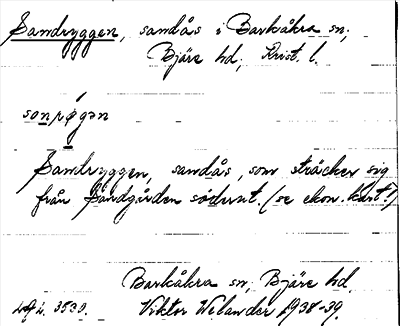 Sandryggen, sandås i Barkåkra sn,
Bjäre hd, Krist. l.
sonrøgən
Sandryggen, sandås, som sträcker sig
från Sandgården söderut. (se ekon. kart?)
Barkåkra sn, Bjäre hd
3530. Viktor Welander 1938-39.